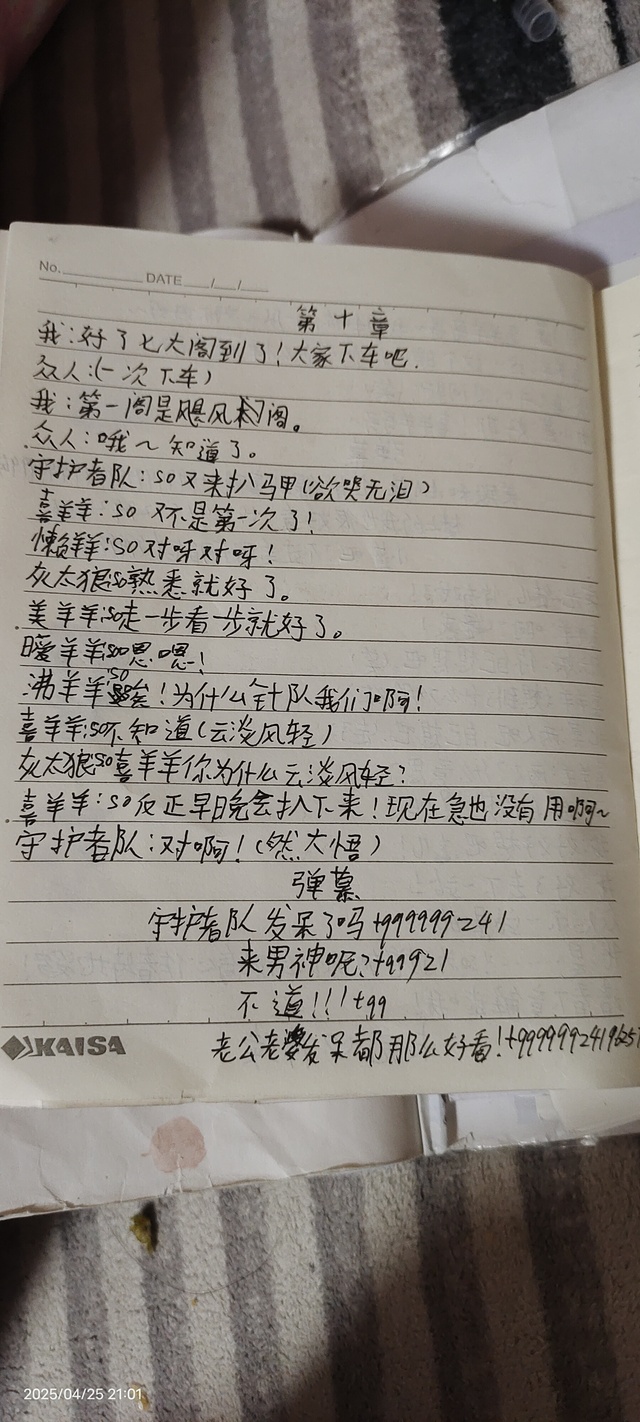 No. DATE / /
第十章
我:好了七大阁到了!大家下车吧.
众人:(一次下车)
我:第一阁是飓风阁。
众人:哦~知道了。
守护者队:so又来扒马甲(欲哭无泪)
喜羊羊:so 又不是第一次了!
懒羊羊:so对呀对呀!
灰太狼:so熟悉就好了。
美羊羊:so走一步看一步就好了。
暖羊羊:so嗯嗯!
沸羊羊:so唉!为什么针队我们啊!
喜羊羊:so不知道(云淡风轻)
灰太狼:so喜羊羊你为什么云淡风轻?
喜羊羊:so反正早晚会扒下来!现在急也没有用啊~
守护者队:对啊!(然大悟)
弹幕
守护者队发呆了吗+999999241
来男神呢?+99921
不道!!!+99
KAISA
老公老婆发呆都那么好看!+99999924196257
2025/04/25 21:01